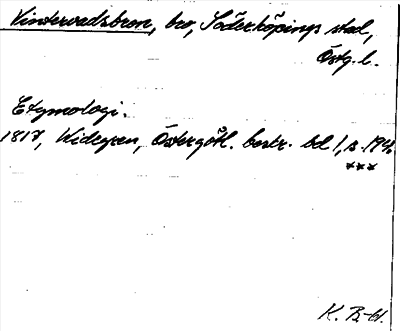 Vintervadsbron, bro, Söderköpings stad,
Östg. l.
Etymologi.
1817, Widegren, Östergötl. beskr. bd 1, s. 194.
***
K. B-g.